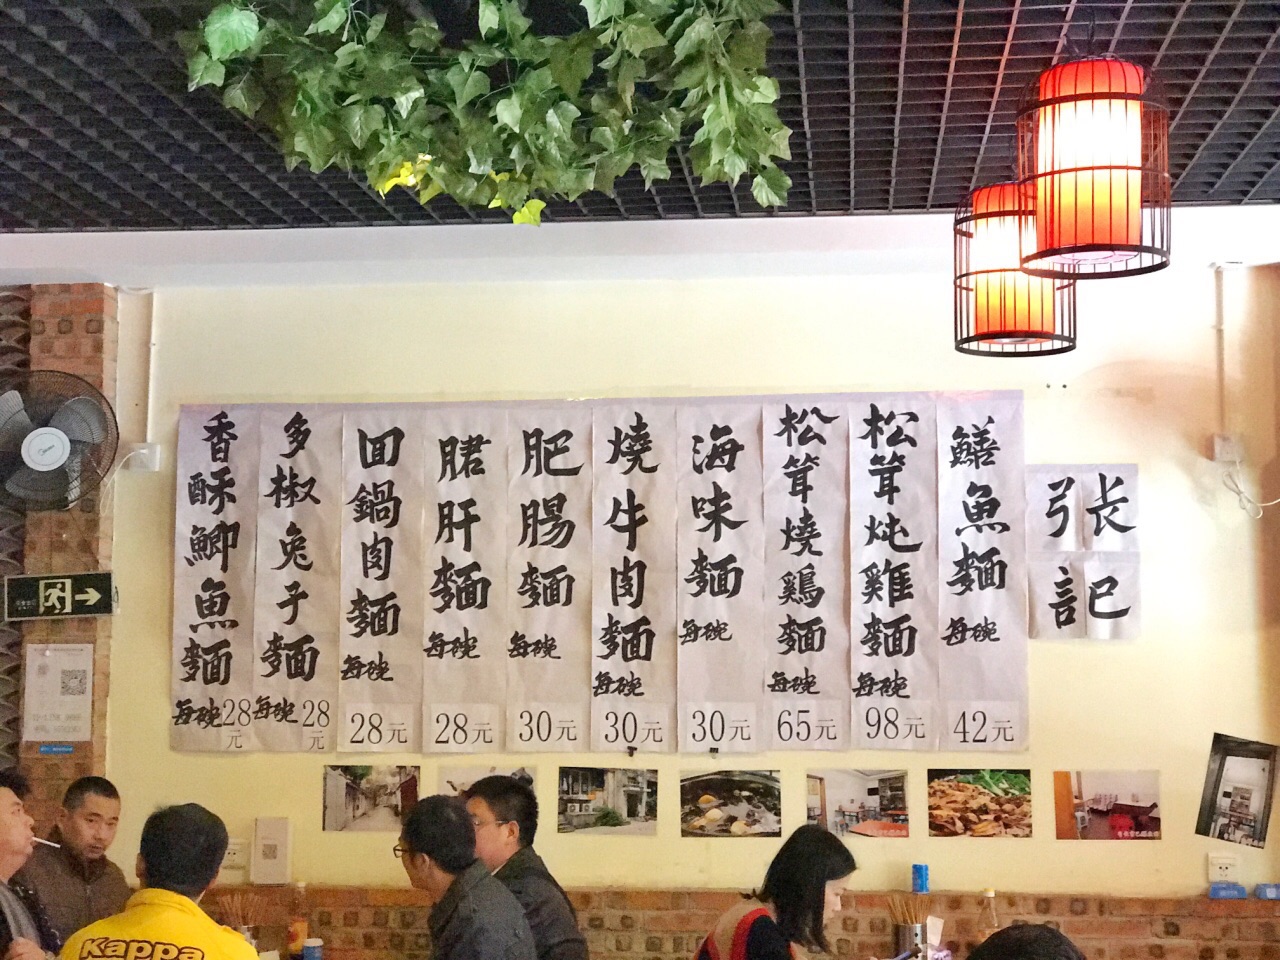 弓长
記
鱔魚麵
每碗
42元
松茸炖雞麵
每碗
98元
松茸燒鷄麵
每碗
65元
海味麵
每碗
30元
燒牛肉麵
每碗
30元
肥腸麵
每碗
30元
肝麵
每碗
28元
回鍋肉麵
每碗
28元
多椒兔子麵
每碗28元
香酥鯽魚麵
每碗28元
Kappa